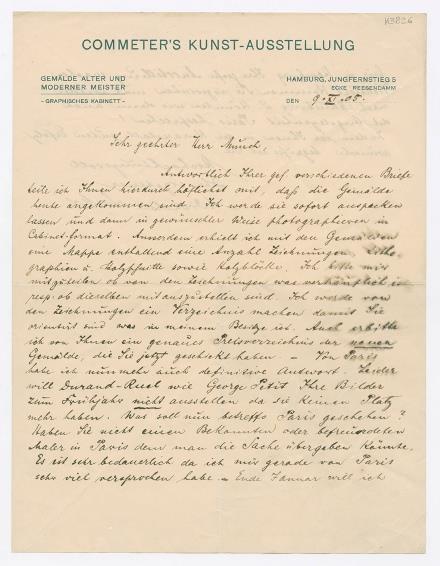 K3826
COMMETER'S KUNST-AUSSTELLUNG
GEMÄLDE ALTER UND
MODERNER MEISTER
- GRAPHISCHES KABINETT -
HAMBURG, JUNGFERNSTIEG 5
ECKE REESENDAMM
DEN 9. XI. 05.
Sehr geehrter Herr Munch,
Antwortlich Ihrer gef. verschiedenen Briefe
teile ich Ihnen hierdurch höflichst mit, daß die Gemälde
heute angekommen sind. Ich werde sie sofort auspacken
lassen und dann in gewünschter Weise photographieren in
Cabinet-format. Ausserdem erhielt ich mit den Gemälden
eine Mappe enthaltend eine Anzahl Zeichnungen, Litho-
graphien u. Holzschnitte sowie Holzblöcke. Ich bitte mir
mitzuteilen ob von den Zeichnungen was verkäuflich ist
resp. ob dieselben mit auszustellen sind. Ich werde von
den Zeichnungen ein Verzeichnis machen damit Sie
orientirt sind was in meinem Besitze ist. Auch erbitte
ich von Ihnen ein genaues Preisverzeichnis der neuen
Gemälde, die Sie jetzt geschickt haben. – Von Paris
habe ich nunmehr auch definitive Antwort. Leider
will Durand-Ruel wie George Petit Ihre Bilder
zum Frühjahr nicht ausstellen da sie keinen Platz
mehr haben. Was soll nun betreffs Paris geschehen?
Haben Sie nicht einen Bekannten oder befreundeten
Maler in Paris dem man die Sache übergeben könnte.
Es ist sehr bedauerlich da ich mir gerade von Paris
sehr viel versprochen habe. – Ende Januar will ich